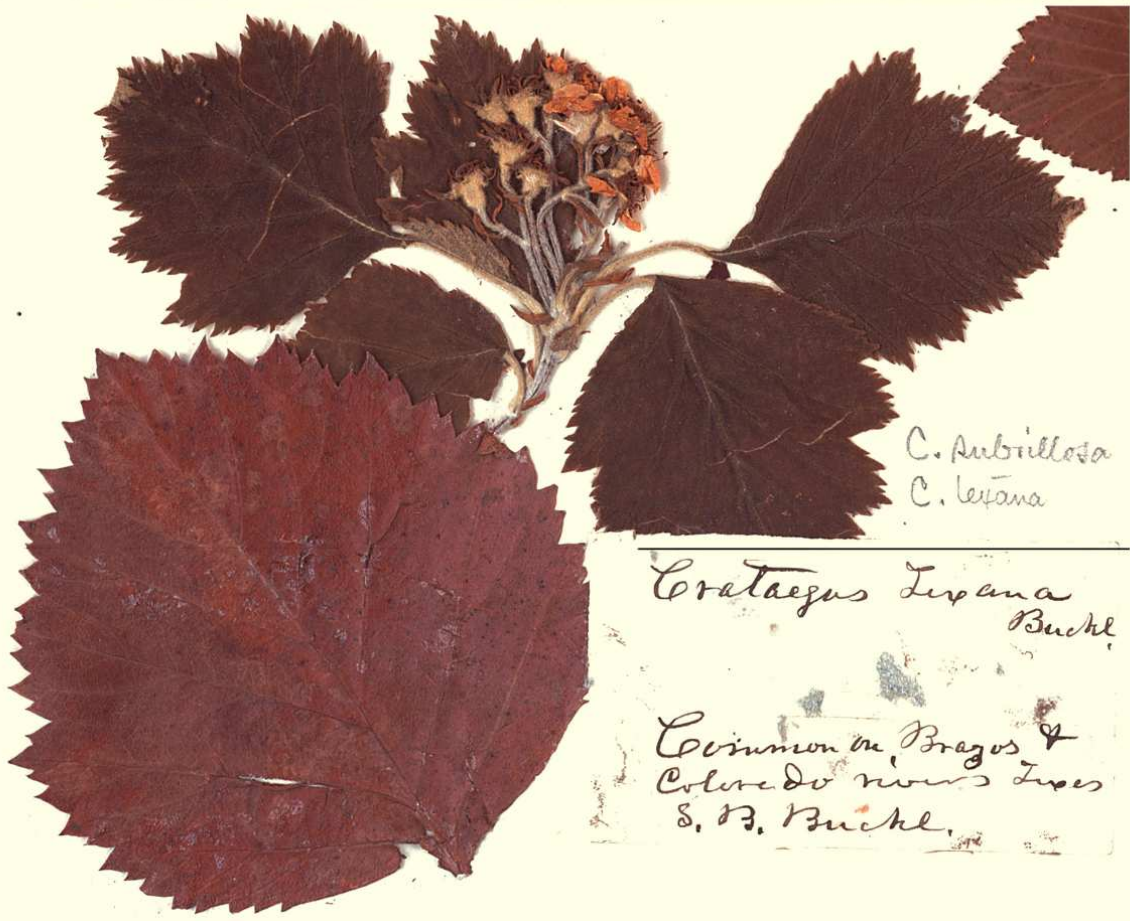 C. subvillosa
C. texana
Crataegus Texana
Buckl.
Common on Brazos &
Colorado rivers Texas
S. B. Buckl.